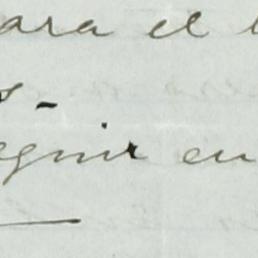 ara el
s-
eguir en